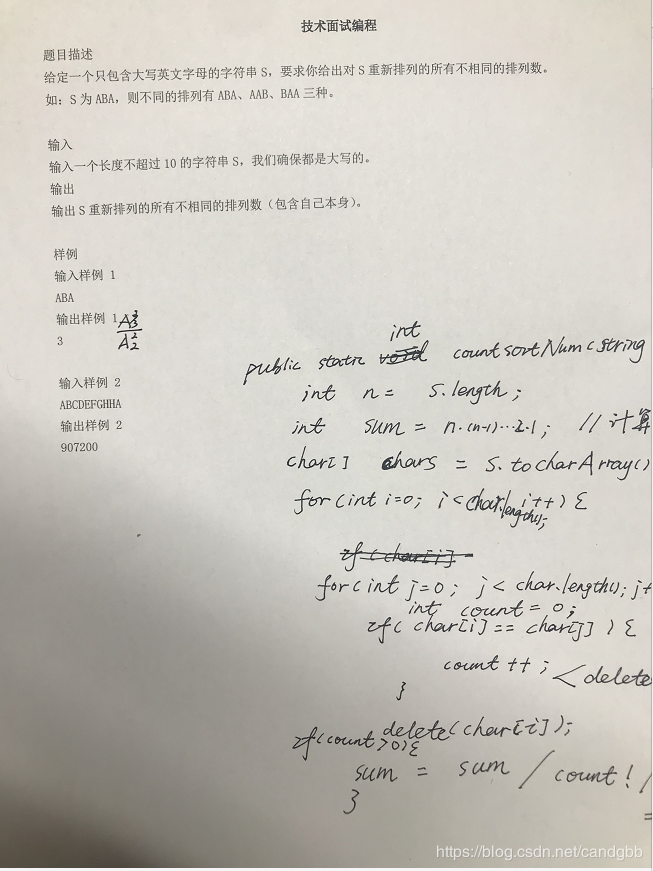 技术面试编程
题目描述
给定一个只包含大写英文字母的字符串 S，要求你给出对 S 重新排列的所有不相同的排列数。
如：S 为 ABA，则不同的排列有 ABA、AAB、BAA 三种。
输入
输入一个长度不超过 10 的字符串 S，我们确保都是大写的。
输出
输出 S 重新排列的所有不相同的排列数（包含自己本身）。
样例
输入样例 1
ABA
输出样例 1
3
A³₃
A²₂
输入样例 2
ABCDEFGHHA
输出样例 2
907200
int
public static void countsortNum(string
int n = S.length;
int sum = n·(n-1)…2·1; //计算
char[] chars = S.tocharArray()
for(int i=0; i<char.length(); i++) {
if(char[i]
for(int j=0; j<char.length(); j+
int count = 0;
if( char[i] == char[j] ) {
count ++; <delete
}
delete(char[i]);
if(count>0){
sum = sum / count! /
}
=
https://blog.csdn.net/candgbb